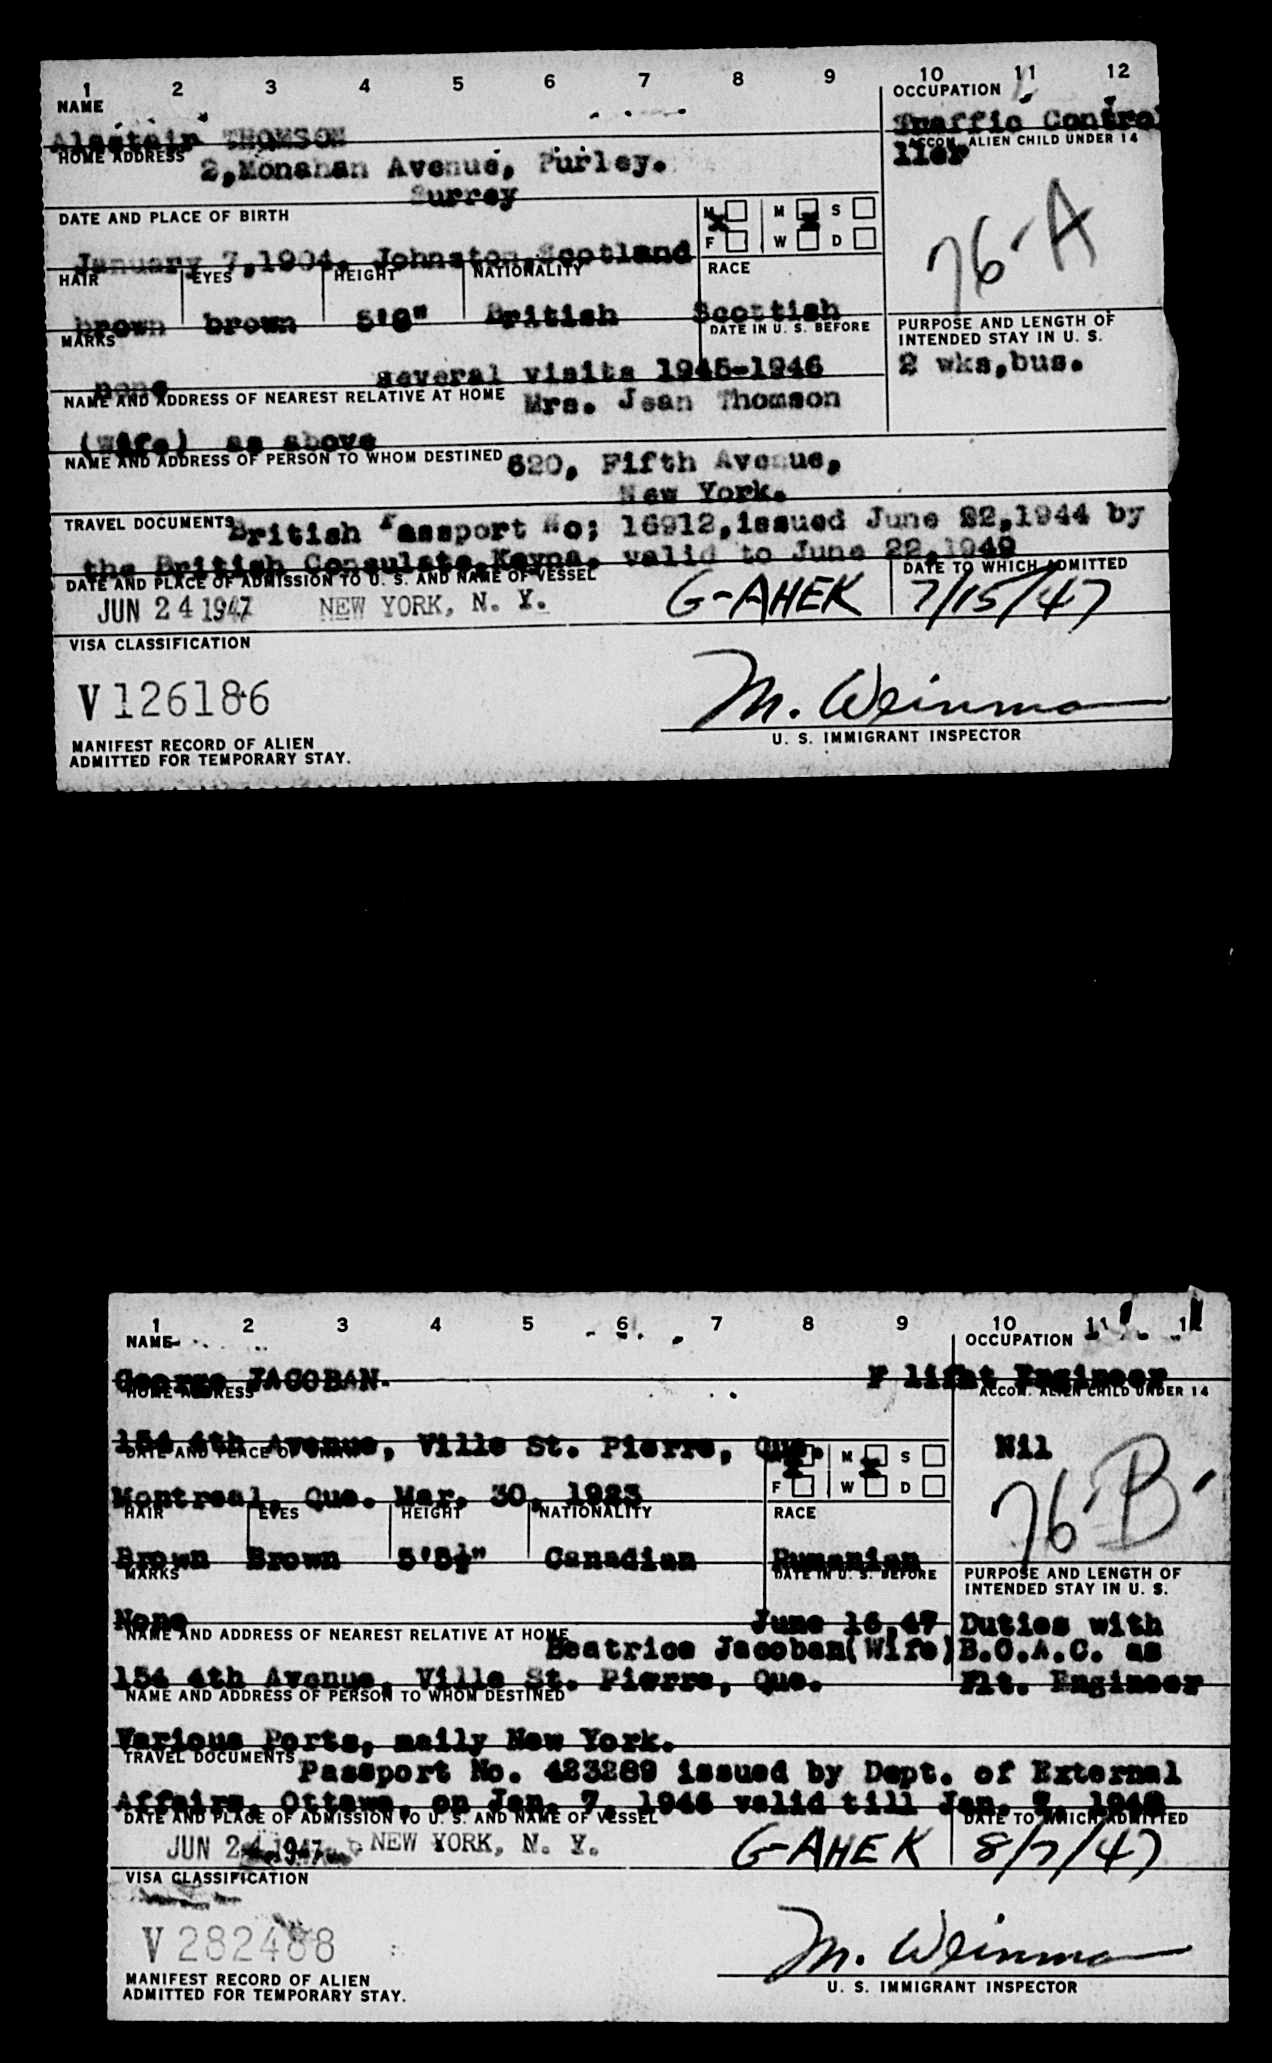 1 2 3 4 5 6 7 8 9 10 11 12
NAME
OCCUPATION
Alastair THOMSON
Traffic Control
ller
HOME ADDRESS
ACCOM. ALIEN CHILD UNDER 14
2,Monahan Avenue, Purley.
Surrey
DATE AND PLACE OF BIRTH
M M S
F W D
76-A
January 7,1904, Johnston,Scotland
HAIR EYES HEIGHT NATIONALITY RACE
brown brown 5'8" British Scottish
MARKS
DATE IN U. S. BEFORE
PURPOSE AND LENGTH OF
INTENDED STAY IN U. S.
none several visits 1945-1946
2 wks,bus.
NAME AND ADDRESS OF NEAREST RELATIVE AT HOME
Mrs. Jean Thomson
(wife) as above
NAME AND ADDRESS OF PERSON TO WHOM DESTINED
620, Fifth Avenue,
New York.
TRAVEL DOCUMENTS
British Passport No; 16912,issued June 22,1944 by
the British Consulate,Keyna, valid to June 22,1949
DATE AND PLACE OF ADMISSION TO U. S. AND NAME OF VESSEL
DATE TO WHICH ADMITTED
JUN 24 1947 NEW YORK, N. Y. G-AHEK 7/15/47
VISA CLASSIFICATION
V 126186
M. Weinman
MANIFEST RECORD OF ALIEN
ADMITTED FOR TEMPORARY STAY.
U. S. IMMIGRANT INSPECTOR
1 2 3 4 5 6 7 8 9 10 11 12
NAME
OCCUPATION
George JACOBAN. F lifht Engineer
HOME ADDRESS
ACCOM. ALIEN CHILD UNDER 14
154 4th Avenue, Ville St. Pierre, Que.
Nil
DATE AND PLACE OF BIRTH
M M S
F W D
76-B
Montreal, Que. Mar. 30, 1923
HAIR EYES HEIGHT NATIONALITY RACE
Brown Brown 5'5½" Canadian Rumanian
MARKS
DATE IN U. S. BEFORE
PURPOSE AND LENGTH OF
INTENDED STAY IN U. S.
None June 16,47
Duties with
B.O.A.C. as
Flt. Engineer
NAME AND ADDRESS OF NEAREST RELATIVE AT HOME
Beatrice Jacoban(Wife)
154 4th Avenue, Ville St. Pierre, Que.
NAME AND ADDRESS OF PERSON TO WHOM DESTINED
Various Ports, maily New York.
TRAVEL DOCUMENTS
Passport No. 423289 issued by Dept. of External
Affairs, Ottawa, on Jan. 7, 1946 valid till Jan. 7,
DATE AND PLACE OF ADMISSION TO U. S. AND NAME OF VESSEL
DATE TO WHICH ADMITTED
JUN 24 1947 NEW YORK, N. Y. G-AHEK 8/7/47
VISA CLASSIFICATION
V 282488
M. Weinman
MANIFEST RECORD OF ALIEN
ADMITTED FOR TEMPORARY STAY.
U. S. IMMIGRANT INSPECTOR